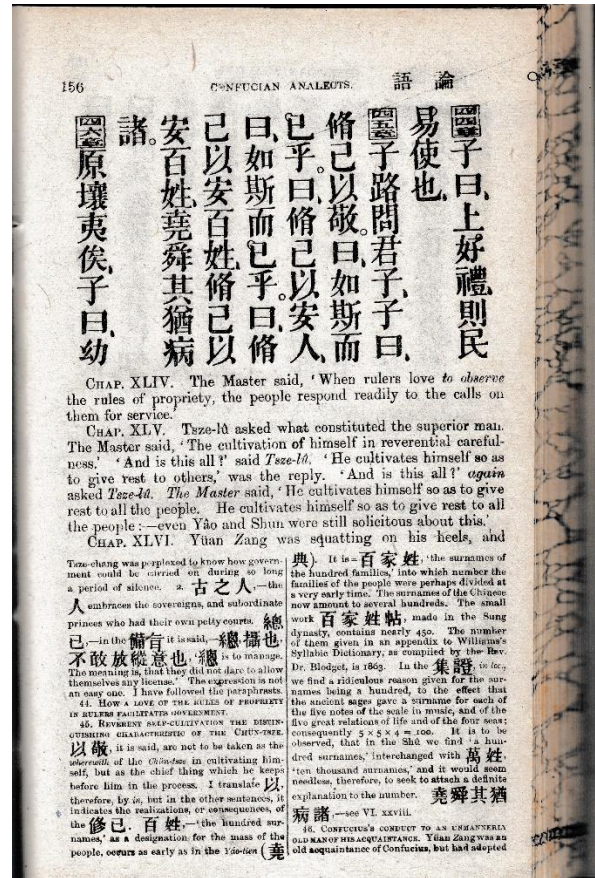 156
CONFUCIAN ANALECTS.
論語
四四章 子曰、上好禮、則民
易使也、
四五章 子路問君子、子曰、
脩己以敬。曰、如斯而
已乎。曰、脩己以安人、
曰、如斯而已乎。曰、脩
己以安百姓、脩己以
安百姓、堯舜其猶病
諸。
四六章 原壤夷俟、子曰、幼
CHAP. XLIV. The Master said, ‘When rulers love to observe
the rules of propriety, the people respond readily to the calls on
them for service.’
CHAP. XLV. Tsze-lû asked what constituted the superior man.
The Master said, ‘The cultivation of himself in reverential careful-
ness.’ ‘And is this all?’ said Tsze-lû. ‘He cultivates himself so as
to give rest to others,’ was the reply. ‘And is this all?’ again
asked Tsze-lû. The Master said, ‘He cultivates himself so as to give
rest to all the people. He cultivates himself so as to give rest to all
the people:—even Yâo and Shun were still solicitous about this.’
CHAP. XLVI. Yüan Zang was squatting on his heels, and
Tsze-chang was perplexed to know how govern-
ment could be carried on during so long
a period of silence. 2. 古之人,—the
人 embraces the sovereigns, and subordinate
princes who had their own petty courts. 總
己,—in the 備旨 it is said,—總攝也,
不敢放縱意也, ‘總 is to manage.
The meaning is, that they did not dare to allow
themselves any license.’ The expression is not
an easy one. I have followed the paraphrasts.
44. HOW A LOVE OF THE RULES OF PROPRIETY
IN RULERS FACILITATES GOVERNMENT.
45. REVERENT SELF-CULTIVATION THE DISTIN-
GUISHING CHARACTERISTIC OF THE CHÜN-TSZE.
以敬, it is said, are not to be taken as the
wherewith of the Chün-tsze in cultivating him-
self, but as the chief thing which he keeps
before him in the process. I translate 以,
therefore, by in, but in the other sentences, it
indicates the realizations, or consequences, of
the 修己. 百姓,—‘the hundred sur-
names,’ as a designation for the mass of the
people, occurs as early as in the Yâo-tien (堯
典). It is=百家姓, ‘the surnames of
the hundred families,’ into which number the
families of the people were perhaps divided at
a very early time. The surnames of the Chinese
now amount to several hundreds. The small
work 百家姓帖, made in the Sung
dynasty, contains nearly 450. The number
of them given in an appendix to Williams's
Syllabic Dictionary, as compiled by the Rev.
Dr. Blodget, is 1863. In the 集證, in loc.,
we find a ridiculous reason given for the sur-
names being a hundred, to the effect that
the ancient sages gave a surname for each of
the five notes of the scale in music, and of the
five great relations of life and of the four seas;
consequently 5 × 5 × 4 = 100. It is to be
observed, that in the Shû we find ‘a hun-
dred surnames,’ interchanged with 萬姓,
‘ten thousand surnames,’ and it would seem
needless, therefore, to seek to attach a definite
explanation to the number. 堯舜其猶
病諸,—see VI. xxviii.
46. CONFUCIUS'S CONDUCT TO AN UNMANNERLY
OLD MAN OF HIS ACQUAINTANCE. Yüan Zang was an
old acquaintance of Confucius, but had adopted